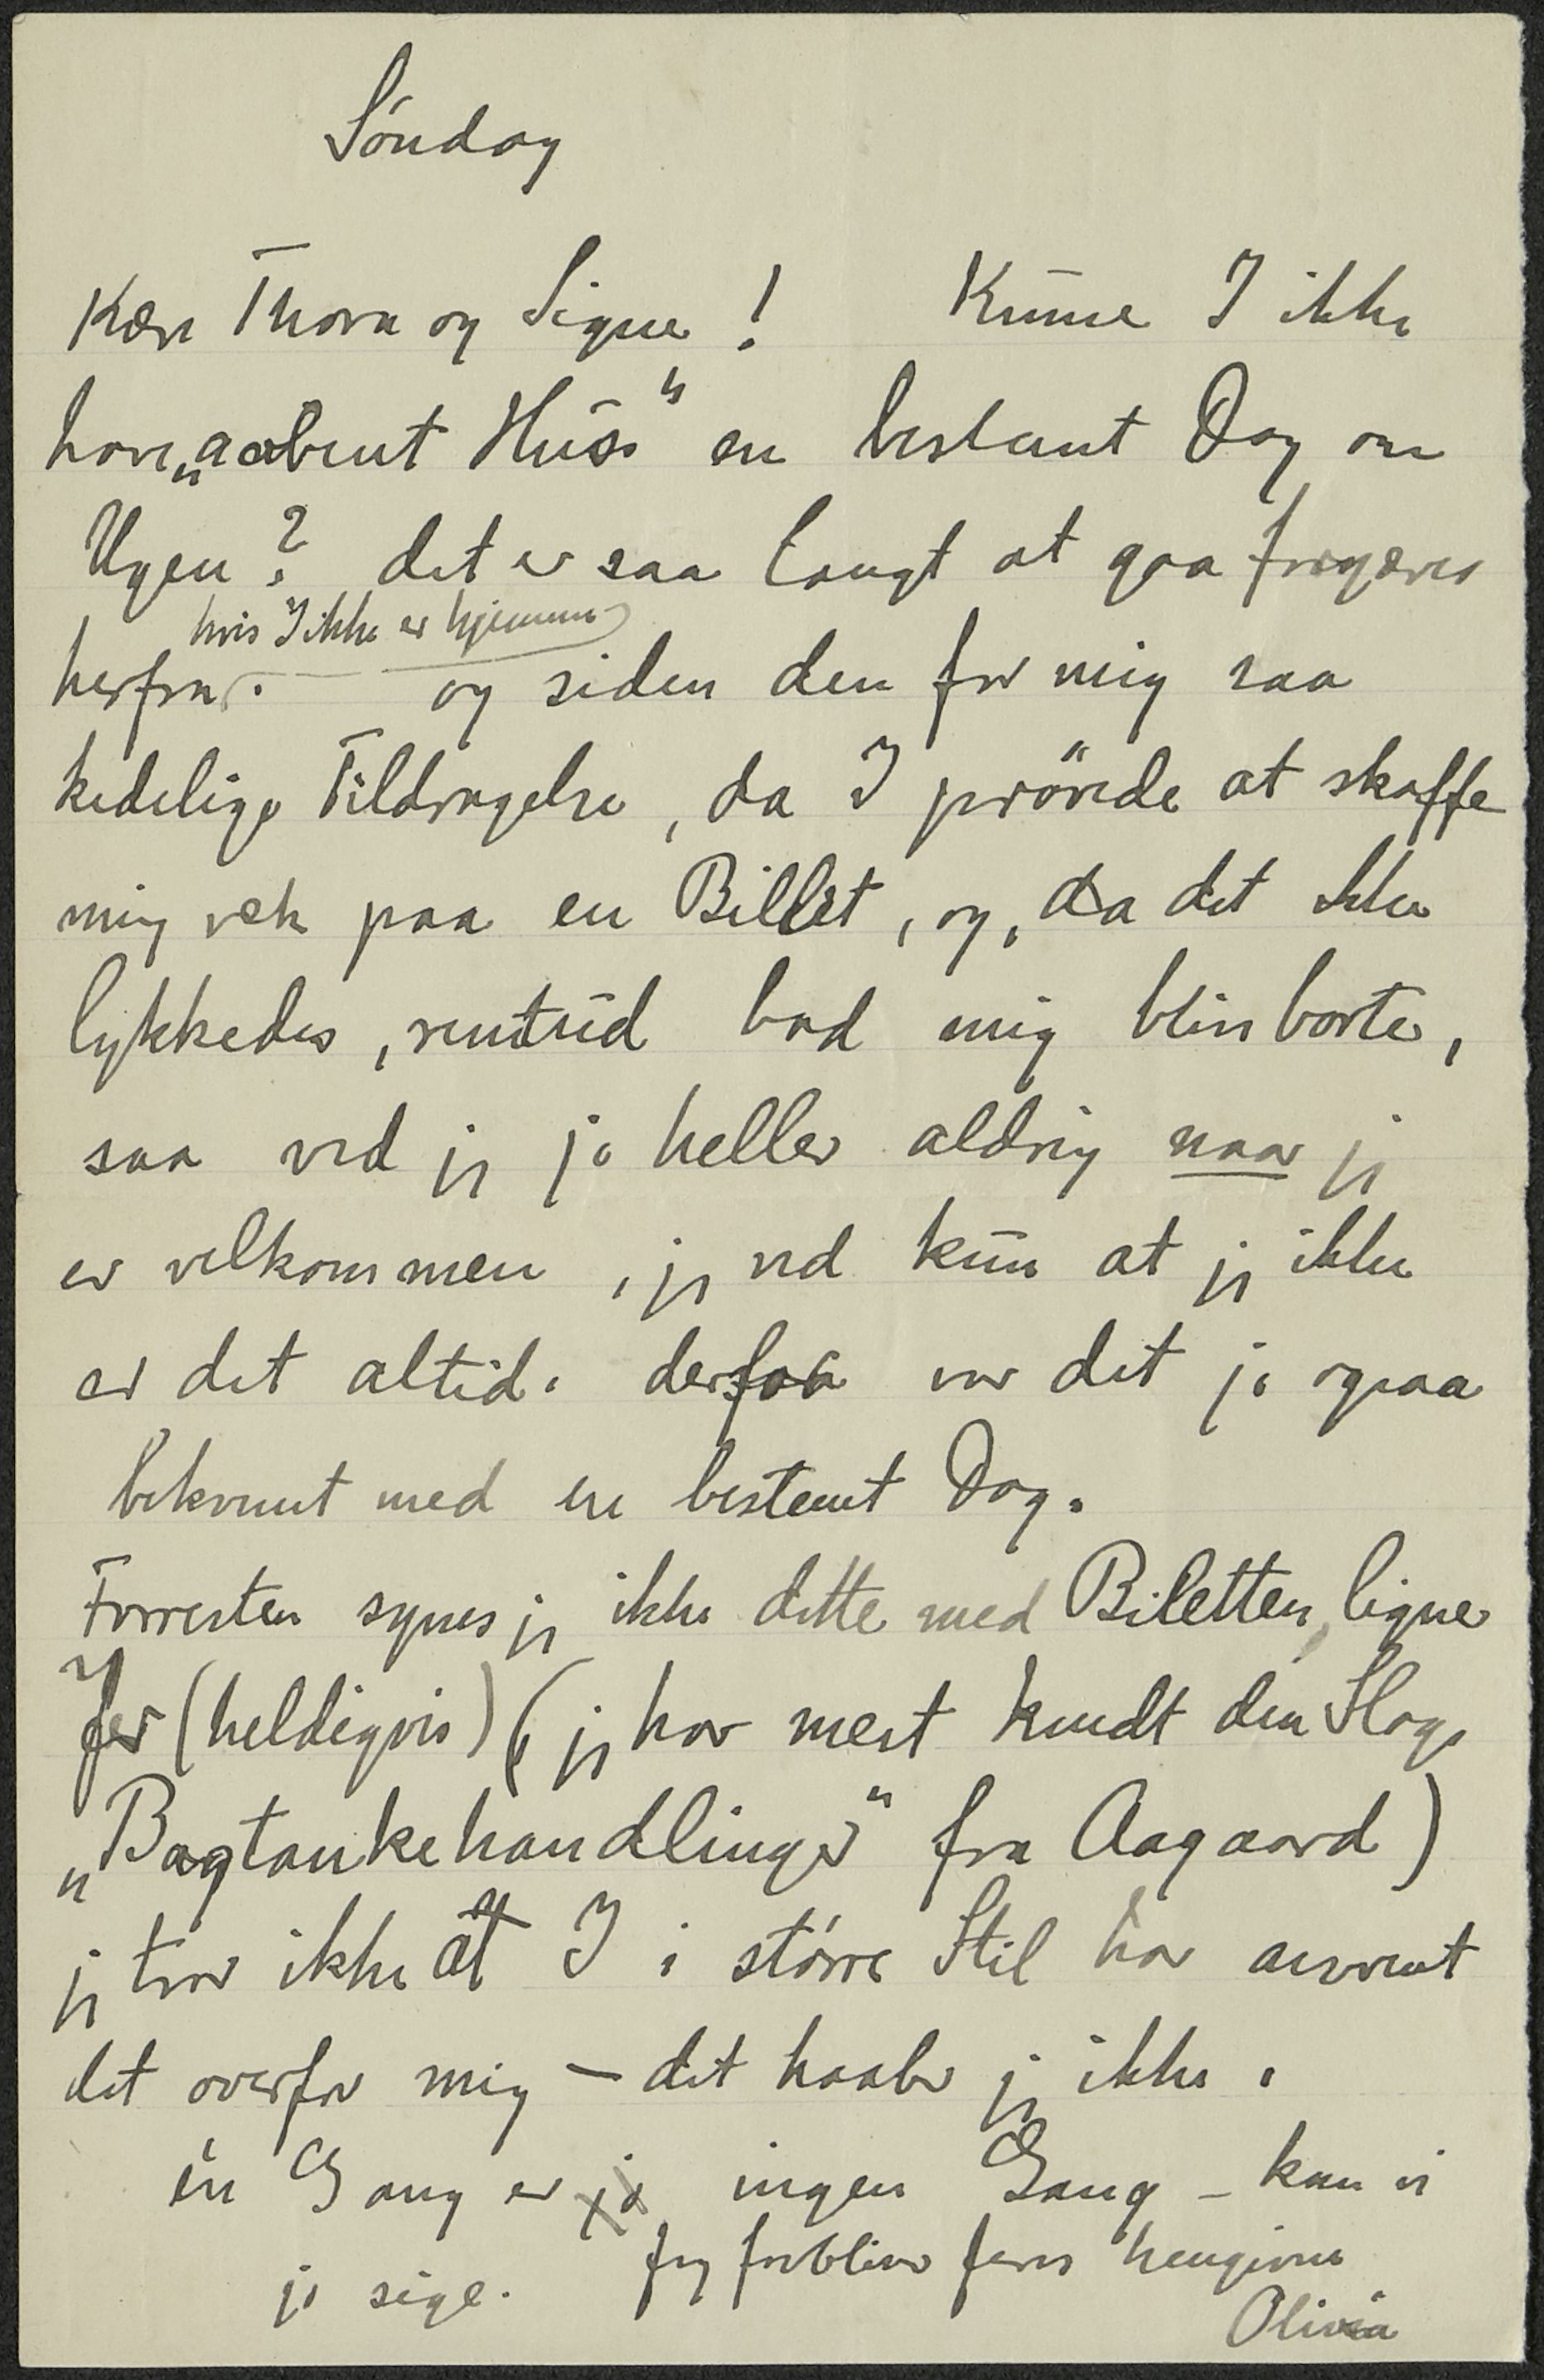 Søndag
Kære Thora og Signe! Kunne I ikke
have „aabent Hus" en bestemt Dag om
Ugen? det er saa langt at gaa forgæves
hvis I ikke er hjemme
herfra. og siden den for mig saa
kedelige Tildragelse, da I prövede at skaffe
mig væk paa en Billet, og, da det ikke
lykkedes, rentud bad mig blive borte,
saa ved jeg jo heller aldrig naar jeg
er velkommen, jeg ved kun at jeg ikke
er det altid. derfor var det jo ogsaa
bekvemt med en bestemt Dag.
Forresten synes jeg ikke dette med Biletten, ligner
Jer (heldigvis) (jeg har mest kendt den Slags
„Bagtankehandlinger" fra Aagaard)
jeg tror ikke at I i större Stil har anvendt
det overfor mig – det haaber jeg ikke.
én Gang er jo ingen Gang – kan vi
jo sige. Jeg forbliver Jeres hengivne
Olivia